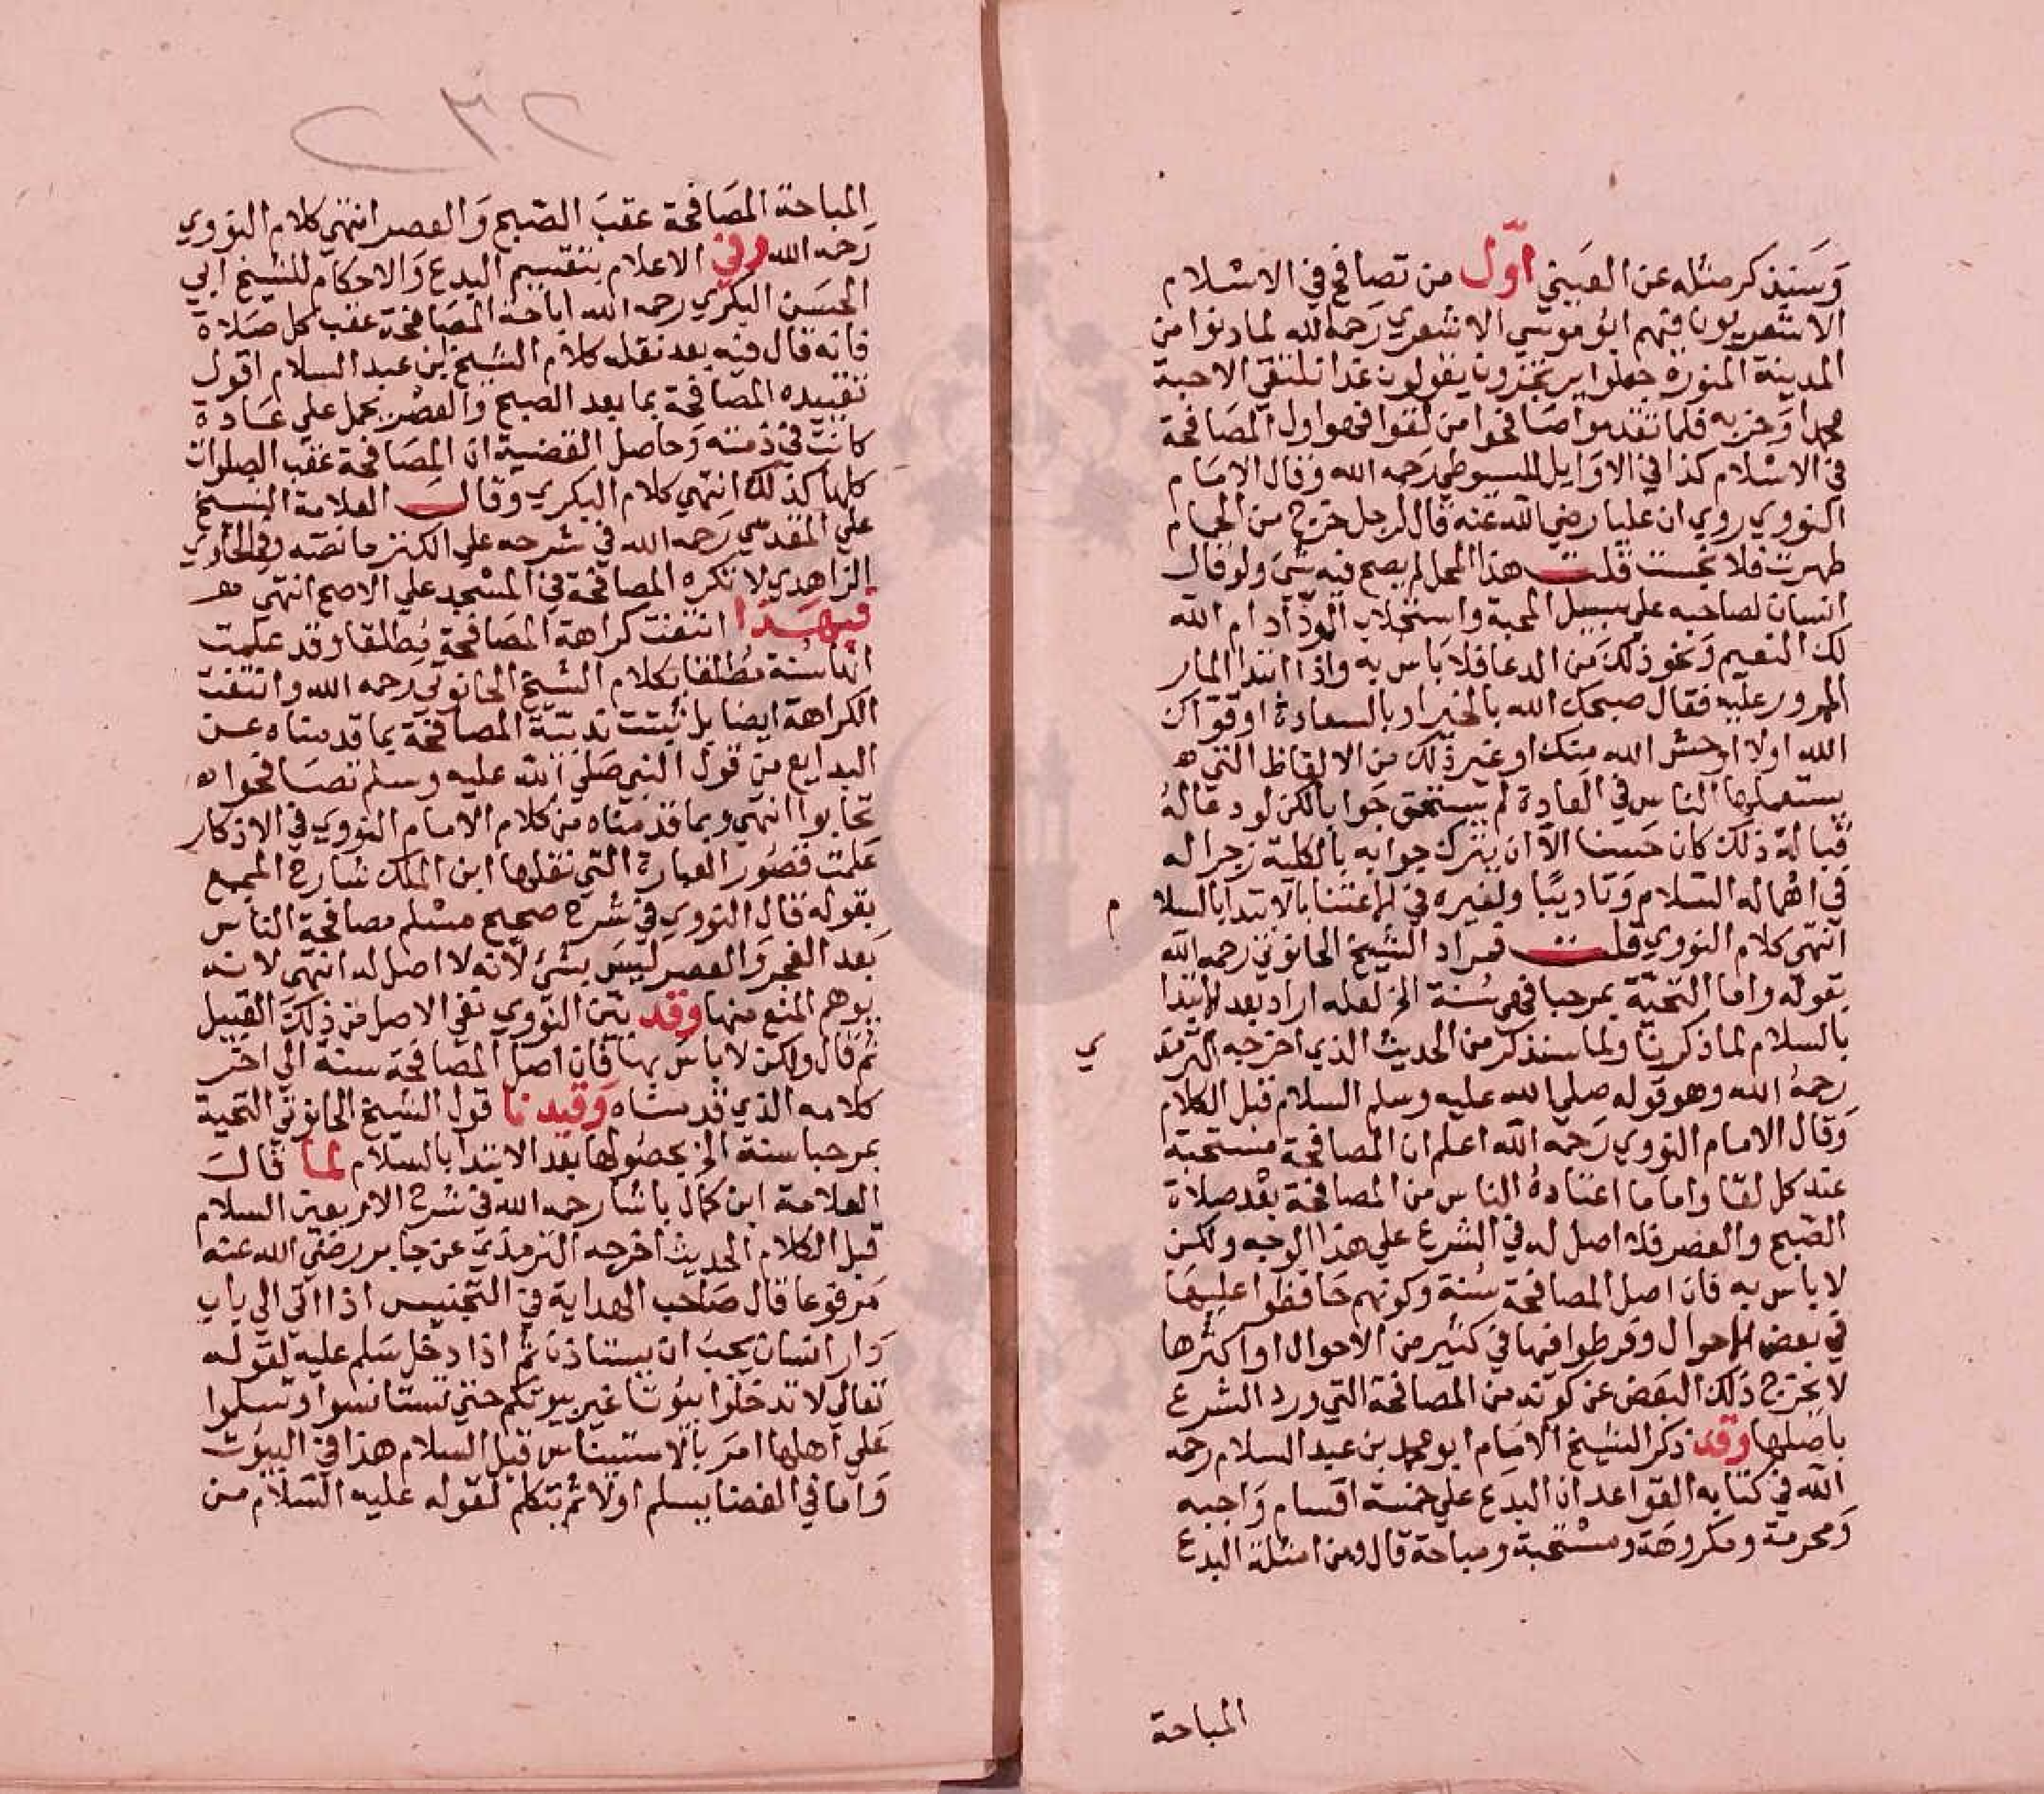 وسنذكر مثله عن العيني اول من تصافح في الاسلام
الاشعريون فيهم ابو موسي الاشعري رحمه الله لما دنوا من
المدينة المنورة جعلوا يرتجزون يقولون غدا نلتقي الاحبة
محمدا وحزبه فلما تقدموا صافحوا من لقوا فهو اول المصافحة
في الاسلام كذا في الاوايل للسيوطي رحمه الله وقال الامام
النووي روي ان عليا رضي الله عنه قال لرجل خرج من الحمام
طهرت فلا نجست قلت هذا المحل لم يصح فيه شي ولو قال
انسان لصاحبه علي سبيل المحبة واستجلاب الود ادام الله
لك النعيم ونحو ذلك من الدعا فلا باس به واذا ابتدا المار
المرور عليه فقال صبحك الله بالخير او بالسعادة او قواك
الله او لا اوحش الله منك او غير ذلك من الالفاظ التي
يستعملها الناس في العادة لم يستحق جوابا لكن لو دعا له
قبالة ذلك كان حسنا الا ان يترك جوابه بالكلية زجرا له
في اهماله السلام وتاديبا ولغيره في الاعتنا بالابتدا بالسلام
انتهي كلام النووي قلت فمراد الشيخ الحانوتي رحمه الله
بقوله واما التحية بمرحبا فهي سنة الخ لعله اراد بعد الابتدا
بالسلام لما ذكرنا ولما سنذكر من الحديث الذي اخرجه الترمذي
رحمه الله وهو قوله صلي الله عليه وسلم السلام قبل الكلام
وقال الامام النووي رحمه الله اعلم ان المصافحة مستحبة
عند كل لقا واما ما اعتاده الناس من المصافحة بعد صلاة
الصبح والعصر فلا اصل له في الشرع علي هذا الوجه ولكن
لا باس به فان اصل المصافحة سنة وكونهم حافظوا عليها
في بعض الاحوال وفرطوا فيها في كثير من الاحوال او اكثرها
لا يخرج ذلك البعض عن كونه من المصافحة التي ورد الشرع
باصلها وقد ذكر الشيخ الامام ابو محمد بن عبد السلام رحمه
الله في كتابه القواعد ان البدع علي خمسة اقسام واجبه
ومحرمة ومكروهة ومستحبة ومباحة قال ومن امثلة البدع
المباحة
٢٠٣
المباحة المصافحة عقب الصبح والعصر انتهي كلام النووي
رحمه الله وفي الاعلام بتقسيم البدع والاحكام للشيخ ابي
الحسن البكري رحمه الله اباحة المصافحة عقب كل صلاة
فانه قال فيه بعد نقله كلام الشيخ ابن عبد السلام اقول
تقييده المصافحة بما بعد الصبح والعصر يحمل علي عادة
كانت في زمنه وحاصل القضية ان المصافحة عقب الصلوات
كلها كذلك انتهي كلام البكري وقال العلامة الشيخ
علي المقدسي رحمه الله في شرحه علي الكنز ما نصه وفي الحاوي
الزاهدي لا تكره المصافحة في المسجد علي الاصح انتهي
فبهذا انتفت كراهة المصافحة مطلقا وقد علمت
انها سنة مطلقا بكلام الشيخ الحانوتي رحمه الله وانتفت
الكراهة ايضا بل ثبتت ندبية المصافحة بما قدمناه عن
البدايع من قول النبي صلي الله عليه وسلم تصافحوا
تحابوا انتهي وبما قدمناه من كلام الامام النووي في الاذكار
علمت قصور العبارة التي نقلها ابن الملك شارح المجمع
بقوله قال النووي في شرح صحيح مسلم مصافحة الناس
بعد الفجر والعصر ليس بشي لانه لا اصل له انتهي لانه
يوهم المنع منها وقد بين النووي نفي الاصل من ذلك القبيل
ثم قال ولكن لا باس بها فان اصل المصافحة سنة الي اخر
كلامه الذي قدمناه وقيدنا قول الشيخ الحانوتي التحية
بمرحبا سنة الخ بحصولها بعد الابتدا بالسلام لما قال
العلامة ابن كمال باشا رحمه الله في شرح الاربعين السلام
قبل الكلام الحديث اخرجه الترمذي عن جابر رضي الله عنه
مرفوعا قال صاحب الهداية في التجنيس اذا اتي الي باب
دار انسان يجب ان يستاذن ثم اذا دخل سلم عليه لقوله
تعالي لا تدخلوا بيوتا غير بيوتكم حتي تستانسوا وتسلموا
علي اهلها امر بالاستيناس قبل السلام هذا في البيوت
واما في الفضا يسلم اولا ثم يتكلم لقوله عليه السلام من